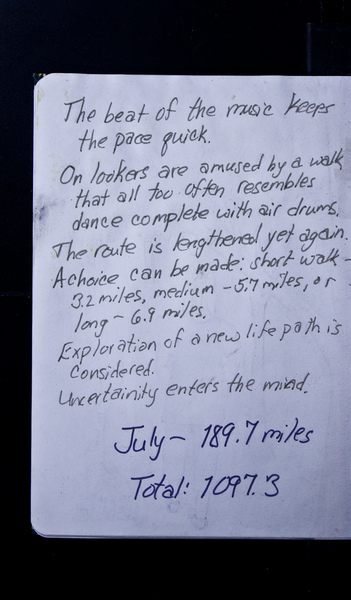 The beat of the music keeps
the pace quick.
On lookers are amused by a walk
that all too often resembles
dance complete with air drums.
The route is lengthened yet again.
A choice can be made: short walk -
3.2 miles, medium - 5.7 miles, or
long - 6.9 miles.
Exploration of a new life path is
considered.
Uncertainity enters the mind.
July - 189.7 miles
Total: 1097.3